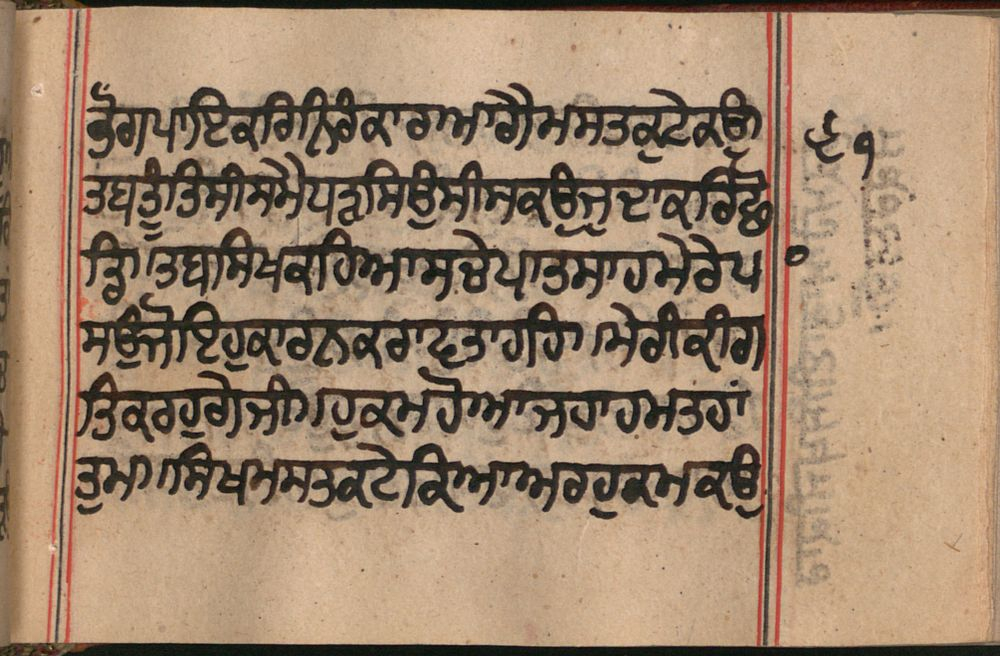 ਭੋਗਪਾਇਕਰਿਨਿਰੰਕਾਰਾਆਗੈਮਸਤਕੁਟੇਕਉ
ਤਬਤੂੰਤਿਸੀਸਮੈਪਰਸਿਉਸੀਸਕਉਜੁਦਾਕਰਿਛੋ
ਡਿ।ਤਬਸਿਖਕਹਿਆਸਚੇਪਾਤਸਾਹਮੇਰੇਪ
ਸਉਜੋਇਹੁਕਾਰਨਕਰਾਵਤਾਹਹਿ।ਮੇਰੀਕੀਗ
ਤਿਕਰਹੁਗੇਜੀ।ਹੁਕਮਹੋਆਜਹਾਹਮਤਹਾਂ
ਤੁਮ।ਸਿਖਮਸਤਕਟੇਕਿਆਅਰਹੁਕਮਕਉ
੬੧